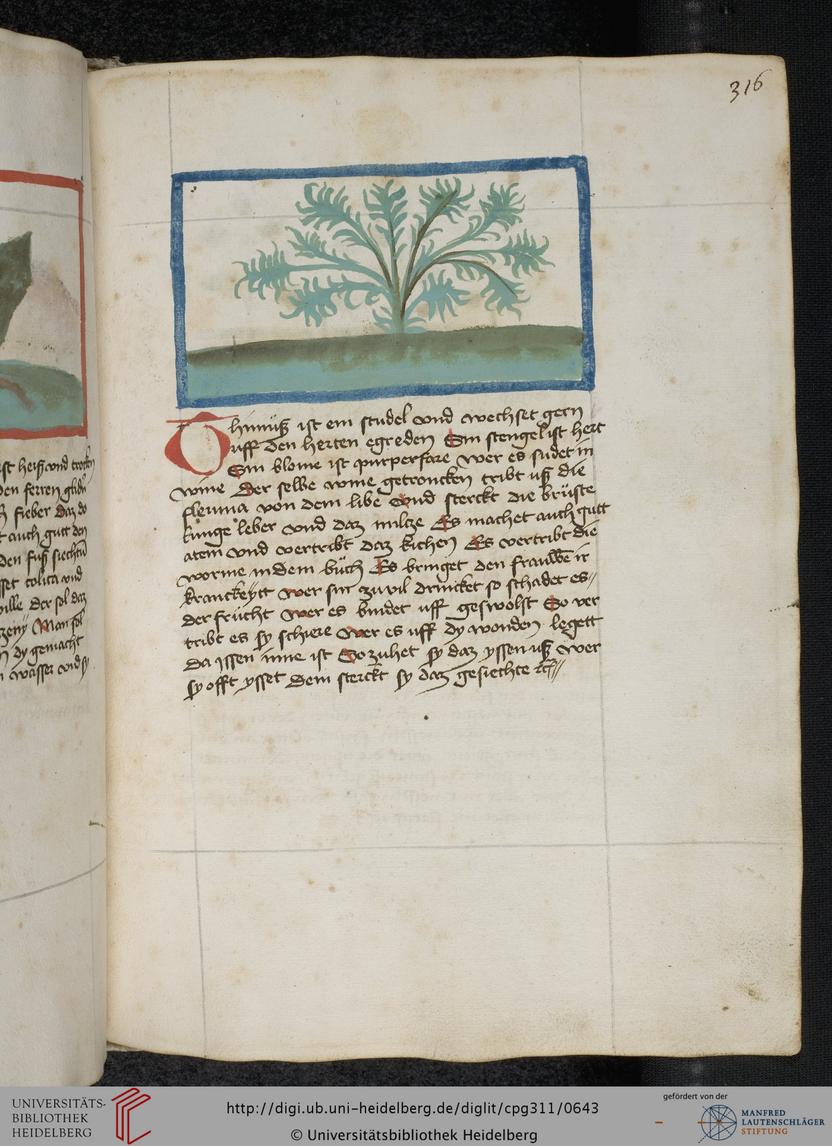 316
Thimiiß ist ein studel vnd wechset gern
vff den herten egreden Sin stengel ist hert
Sin blome ist purperfare wer es sudet in
wine Der selbe wine getroncken tribt vß die
fleuma von dem libe Vnd sterckt die brüste
lunge leber vnd daz milcze Es machet auch gutt
atem vnd vertribt daz kichen Es vertribt die
worme in dem büch Es bringet den frauwen ir
kranckeytt wer sin zu vil drincket so schadet es
der frücht wer es bindet vff geswolst So ver
tribt es sy schiere wer es vff dy wonden legett
da yssen inne ist So zuhet sy daz yssen vß wer
sy offt ysset Dem sterckt sy daz gesiechte
st heiß vnd trocken
den ferren
fieber daz do
auch gutt den
den fuß siechtu
sset colica vnd
wille der sol daz
Man sol
dy gemacht
wasser vnd sy
UNIVERSITÄTS-
BIBLIOTHEK
HEIDELBERG
http://digi.ub.uni-heidelberg.de/diglit/cpg311/0643
© Universitätsbibliothek Heidelberg
gefördert von der
MANFRED
LAUTENSCHLÄGER
STIFTUNG